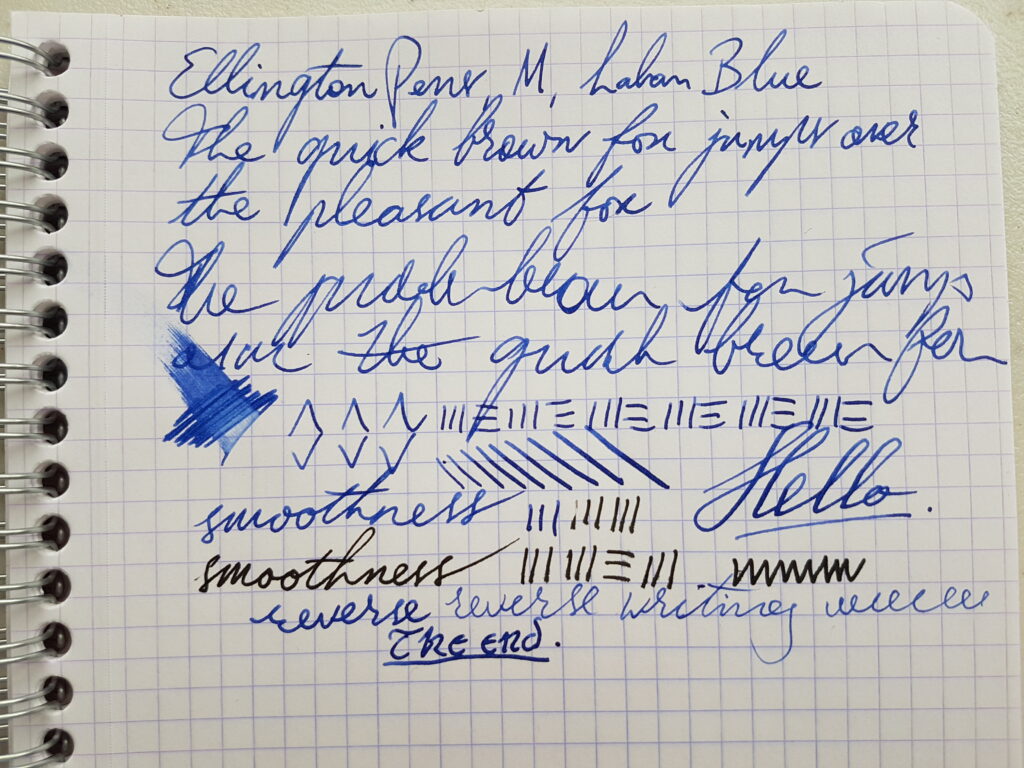 Ellington Pens, M, Laban Blue
The quick brown fox jumps over
the pleasant fox
The quick brown fox jumps
over the quick brown fox
Hello.
smoothness
smoothness
reverse reverse writing
The end.